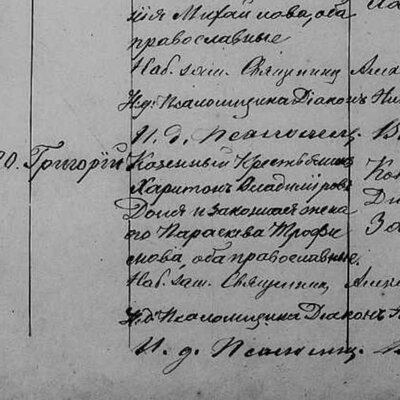 нія Михайлова, оба
православные
Наб. зап. Священникъ Алек
И. д. Псаломщика Діаконъ Ни
И. д. Псаломщ. В
20. Григорій Казенный Крестьянинъ Ко
Харитонъ Владиміровъ Ди
Доля и законная жена За
его Параскева Трофи
мова, оба православные.
Наб. зап. Священник, Алек
И. д. Псаломщика Діаконъ Н
И. д. Псаломщ. В